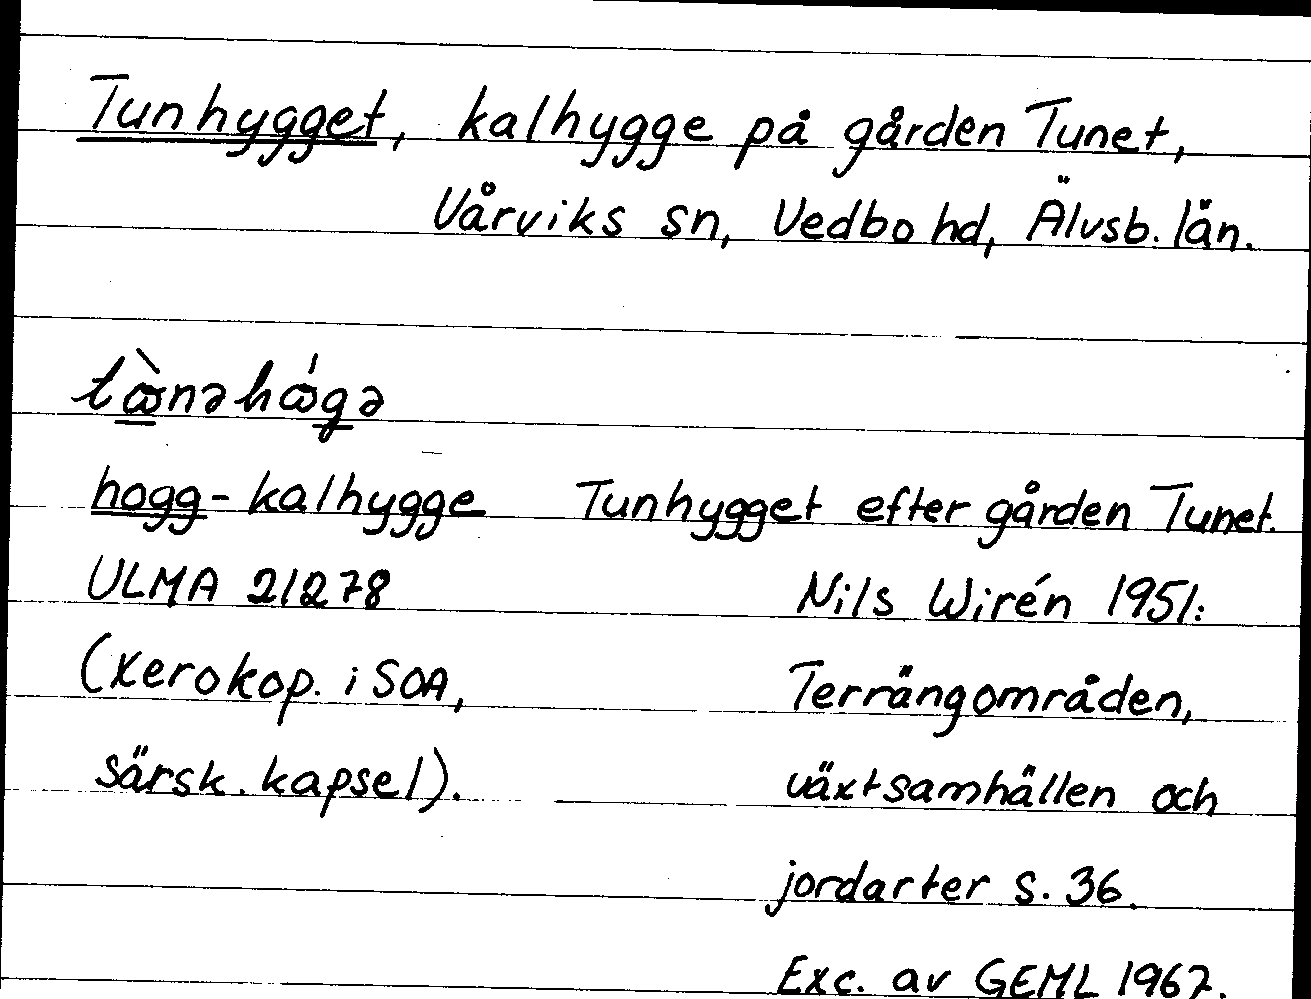 Tunhygget, kalhygge på gården Tunet,
Vårviks sn, Vedbo hd, Älvsb. län.
hogg- kalhygge Tunhygget efter gården Tunet.
ULMA 21278 Nils Wirén 1951:
(Xerokop. i SOA, Terrängområden,
särsk. kapsel). växtsamhällen och
jordarter s. 36.
Exc. av GEML 1967.